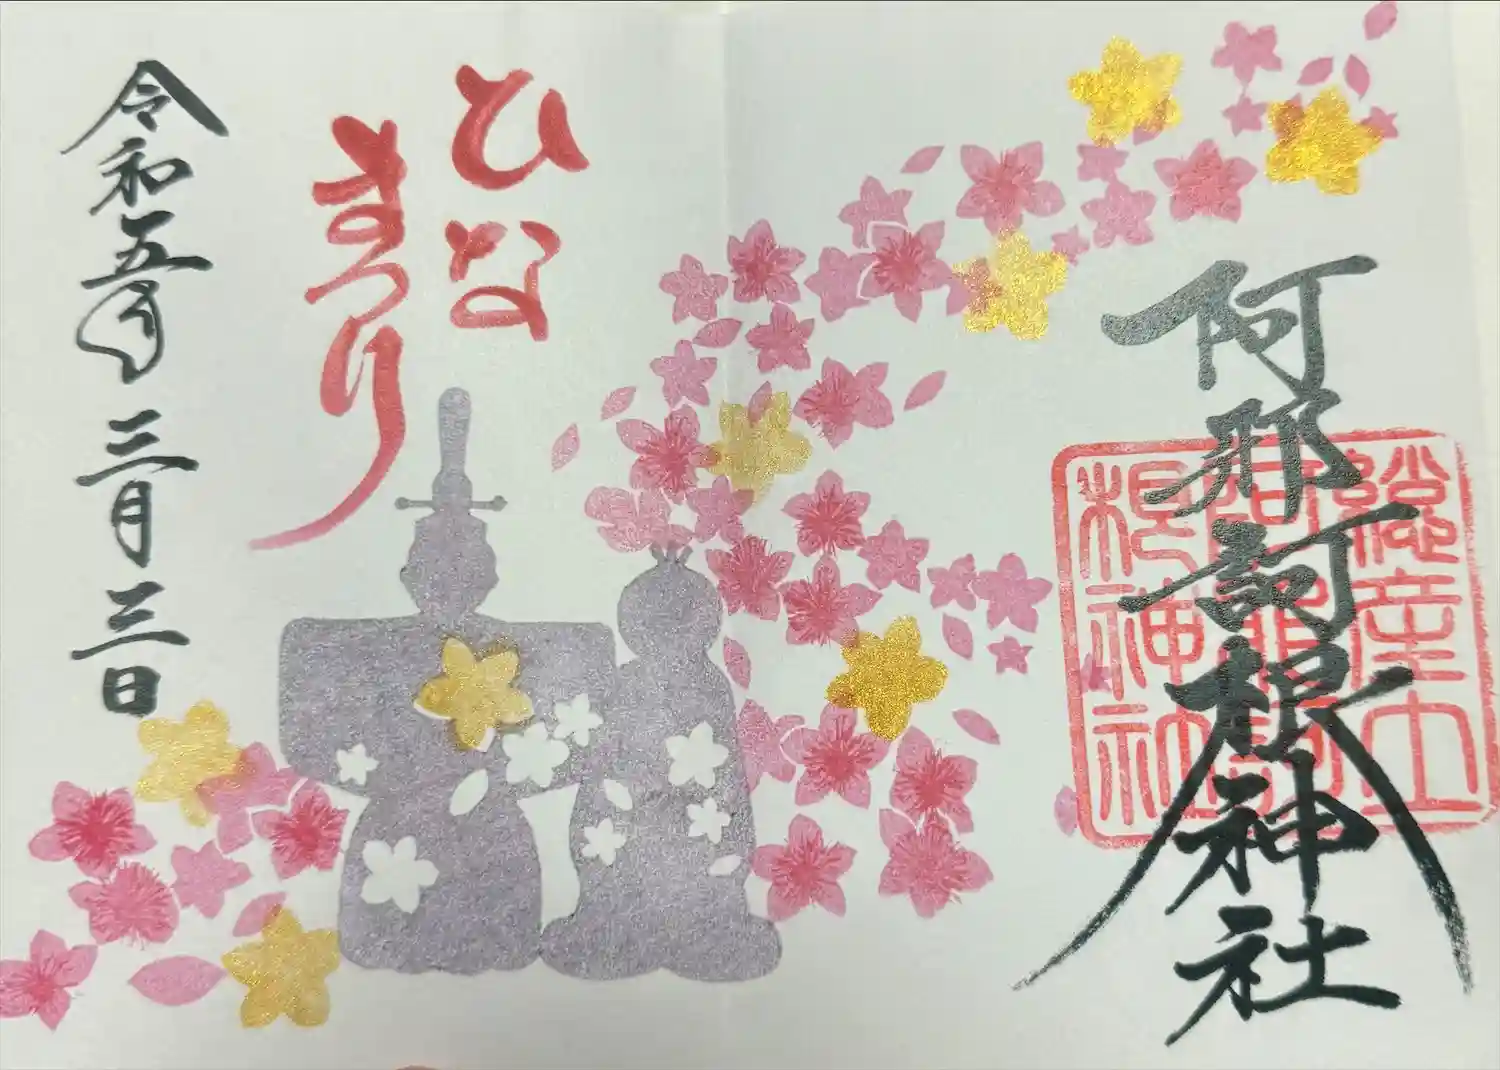 阿邪訶根神社
総産土
阿邪訶
根神社
ひな
まつり
令和五年 三月三日